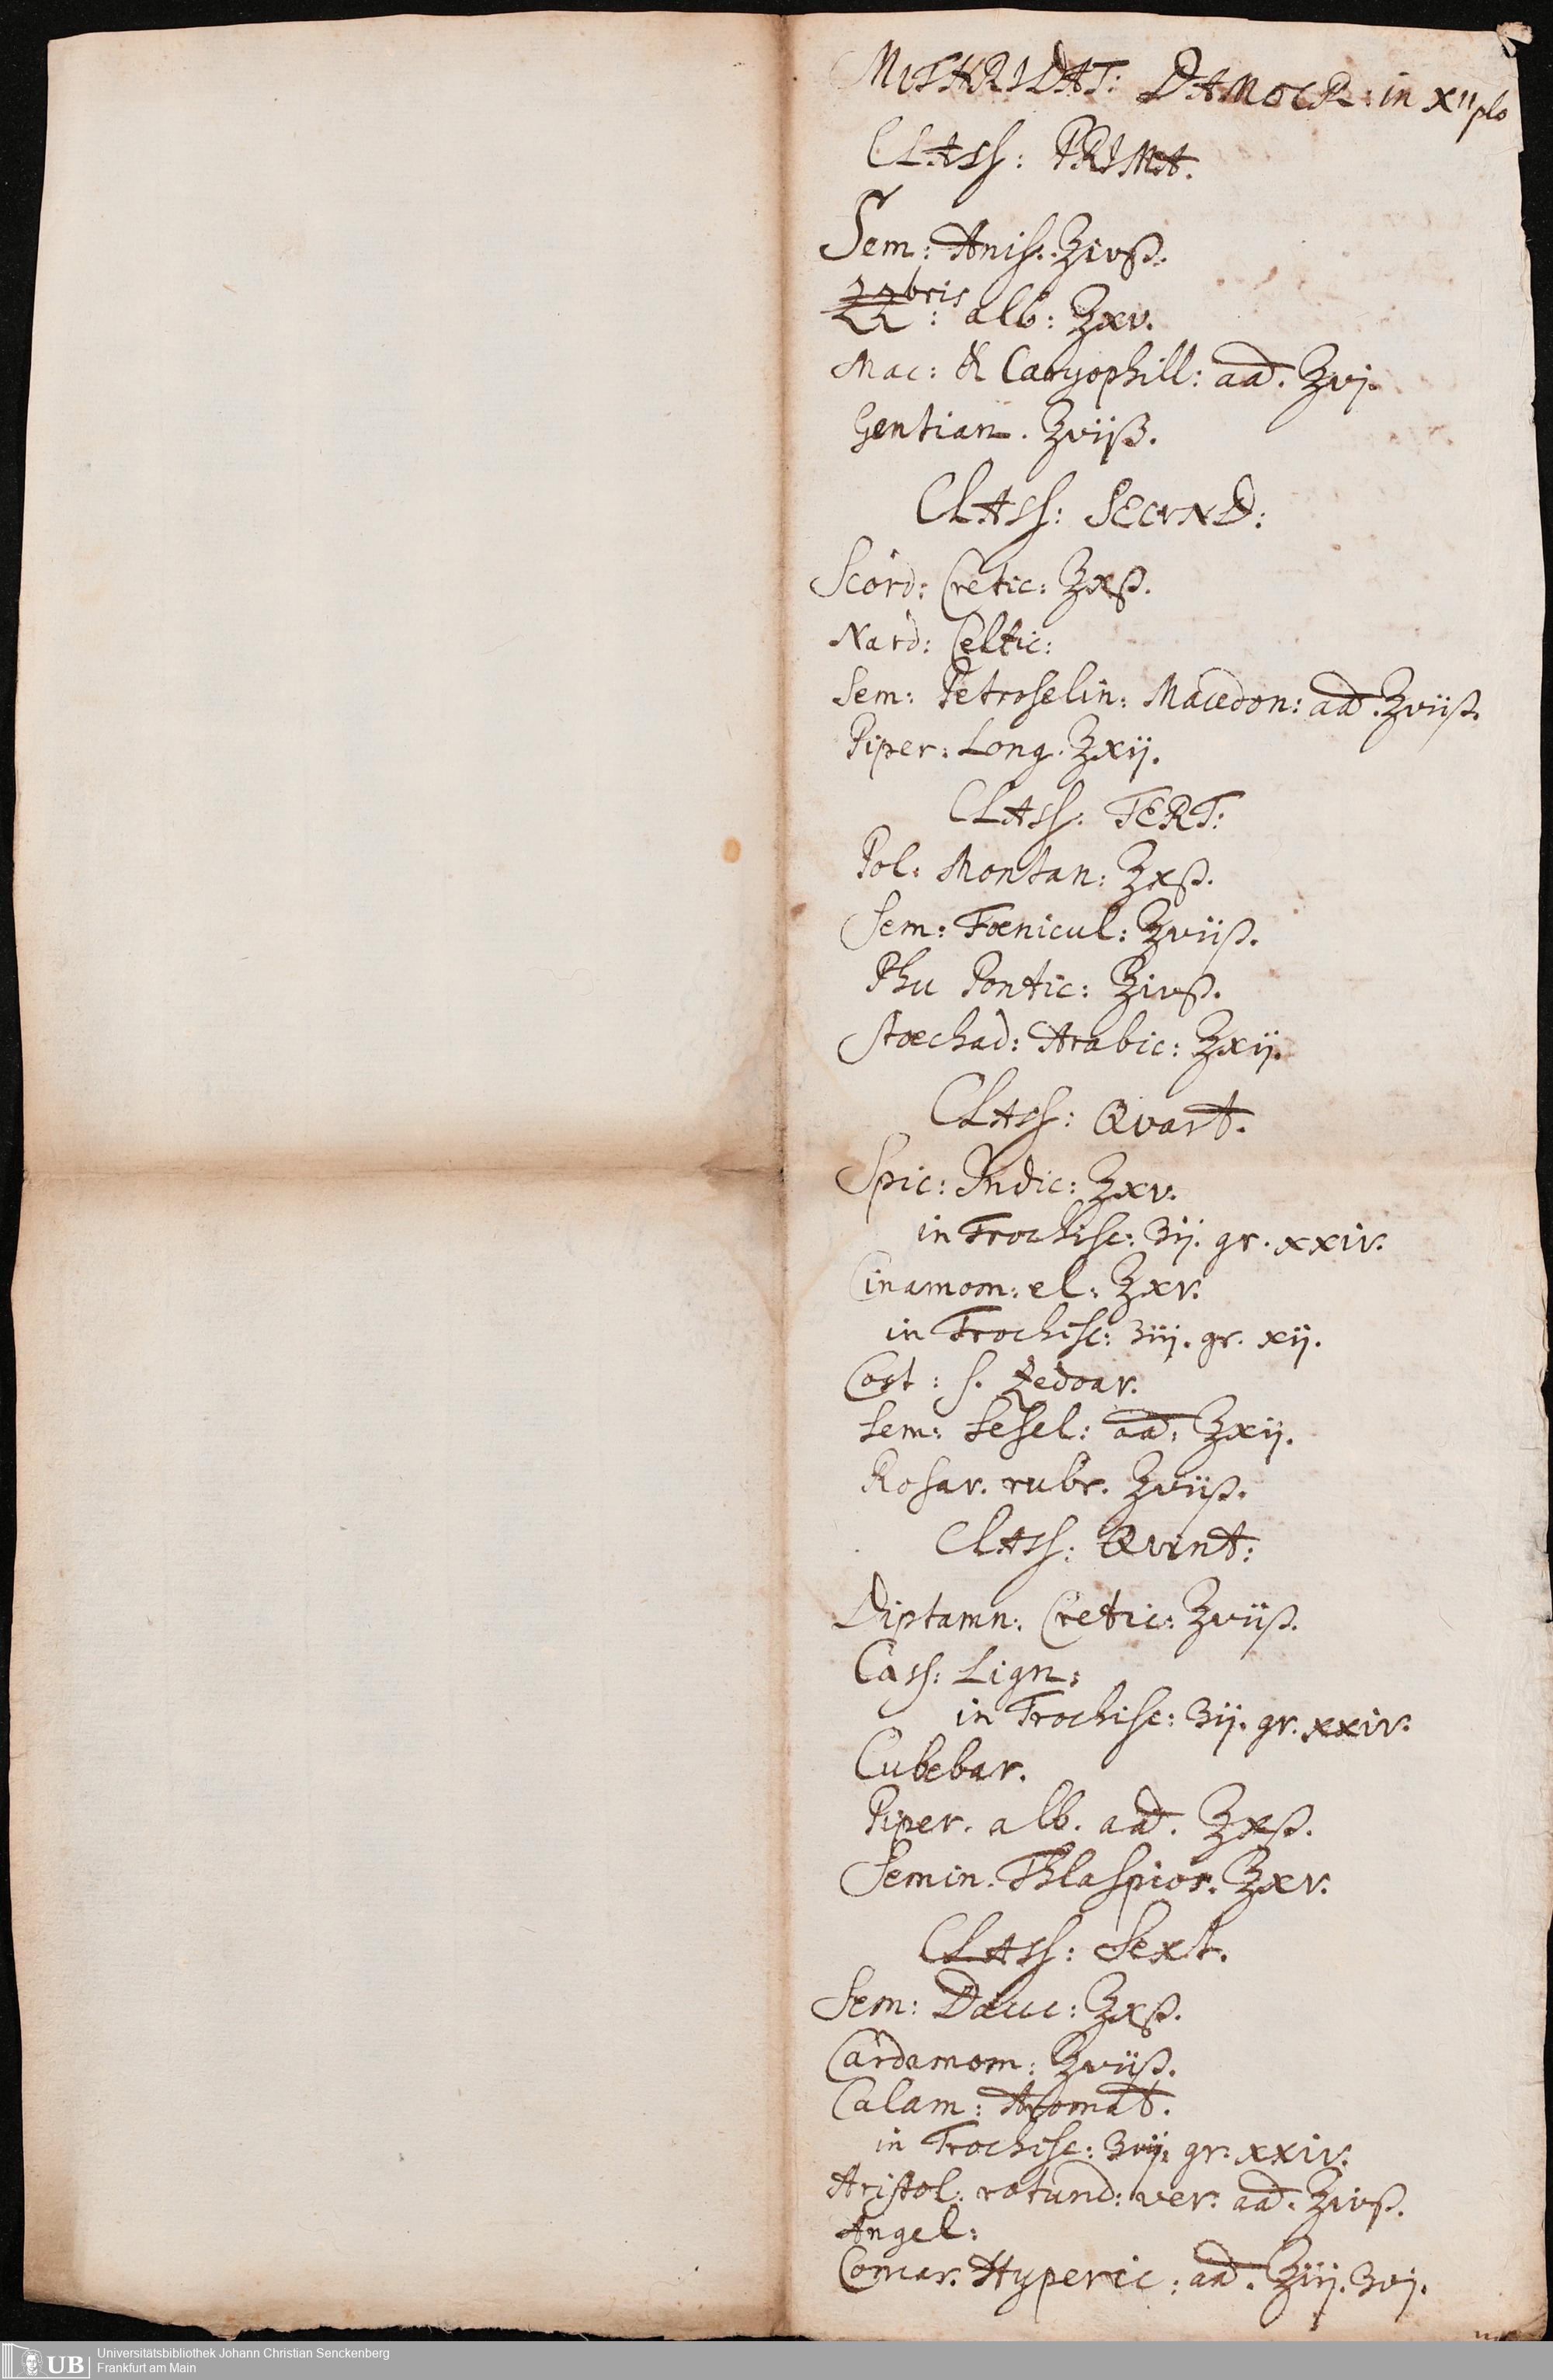 MITHRIDAT: DAMOCR: in XIIplo
CLASS: PRIMA.
Sem: Anis. ℥ivß.
♃♃bris: alb: ℥xv.
Mac: & Caryophill: aā. ℥vj.
Gentian. ℥viiß.
CLASS: SECVND:
Scord: Cretic: ℥xß.
Nard: Celtic:
Sem: Petroselin: Macedon: aā. ℥viiß.
Piper: Long. ℥xij.
CLASS. TERT:
Pol: Montan: ℥xß.
Sem: Fœnicul: ℥viiß.
Phu Pontic: ℥ivß.
Stœchad: Arabic: ℥xij.
CLASS: Qvart.
Spic: Indic: ℥xv.
in Trochisc: ʒij. gr. xxiv.
Cinamom: el: ℥xv.
in Trochisc: ʒiij. gr. xij.
Cost: s. Zedoar.
Sem: Sesel: aā: ℥xij.
Rosar. rubr. ℥viiß.
CLASS: Qvint:
Diptamn: Cretic: ℥viiß.
Cass: Lign:
in Trochisc: ʒij. gr. xxiv.
Cubebar.
Piper. alb. aā. ℥xß.
Semin. Thlaspior. ℥xv.
CLASS: Sext.
Sem: Dauc: ℥xß.
Cardamom: ℥viiß.
Calam: Aromat.
in Trochisc: ʒvij. gr. xxiv.
Aristol: rotund: ver: aā. ℥ivß.
Angel:
Comar. Hyperic: aā. ℥iij. ʒvj.
UB Universitätsbibliothek Johann Christian Senckenberg
Frankfurt am Main